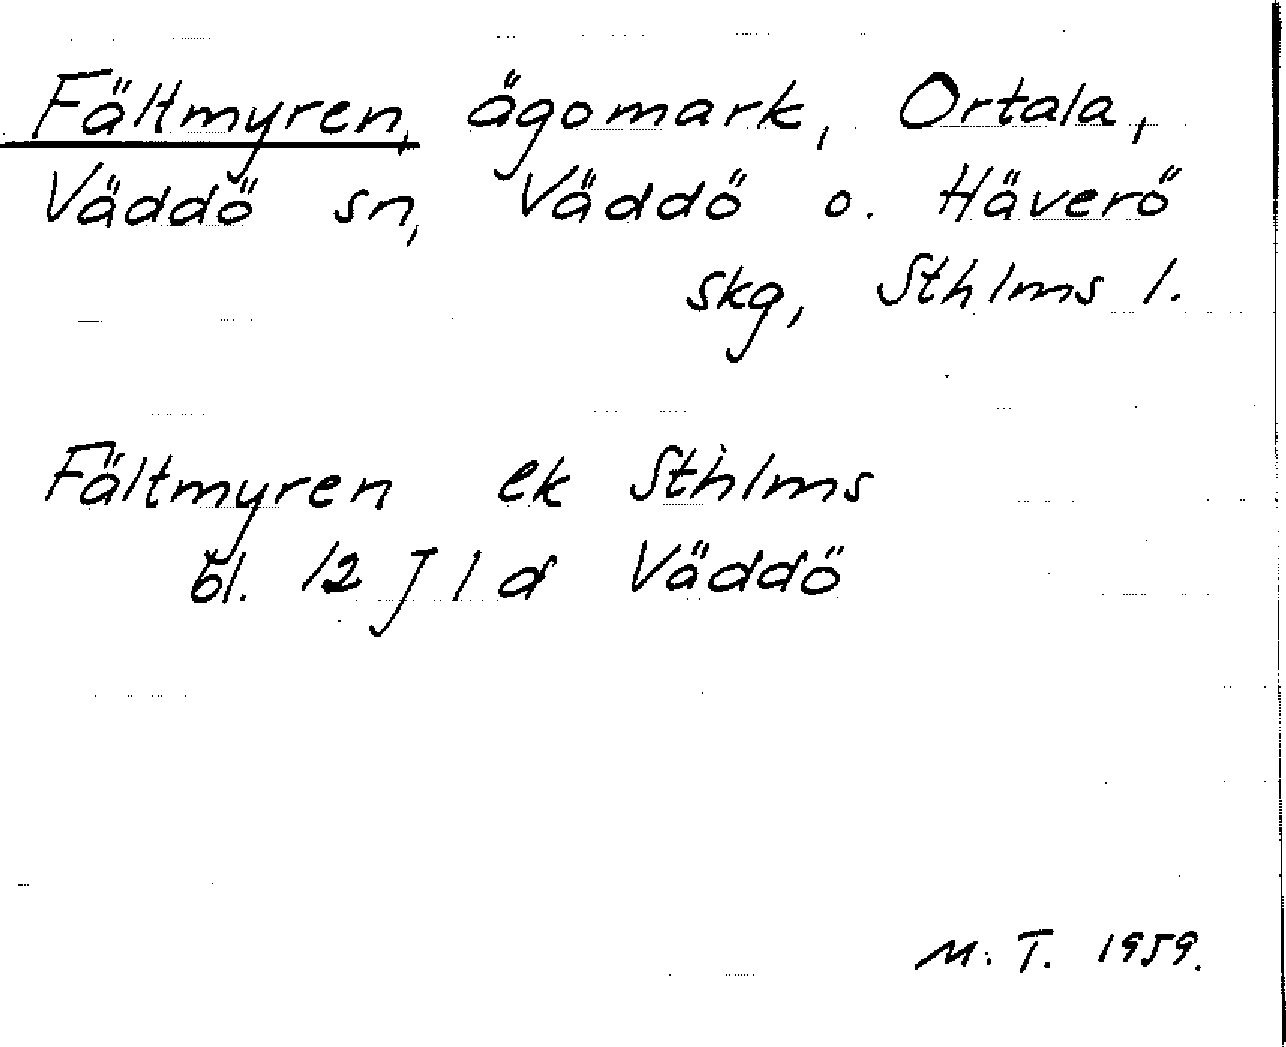 Fältmyren, ägomark, Ortala,
Väddö sn, Väddö o. Häverö
skg, Sthlms l.
Fältmyren ek Sthlms
bl. 12 J 1 d Väddö
M. T. 1959.